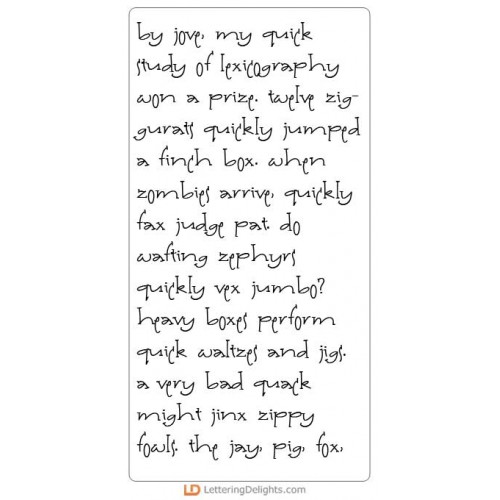 by jove, my quick
study of lexicography
won a prize. twelve zig-
gurats quickly jumped
a finch box. when
zombies arrive, quickly
fax judge pat. do
wafting zephyrs
quickly vex jumbo?
heavy boxes perform
quick waltzes and jigs.
a very bad quack
might jinx zippy
fowls. the jay, pig, fox,
LD LetteringDelights.com